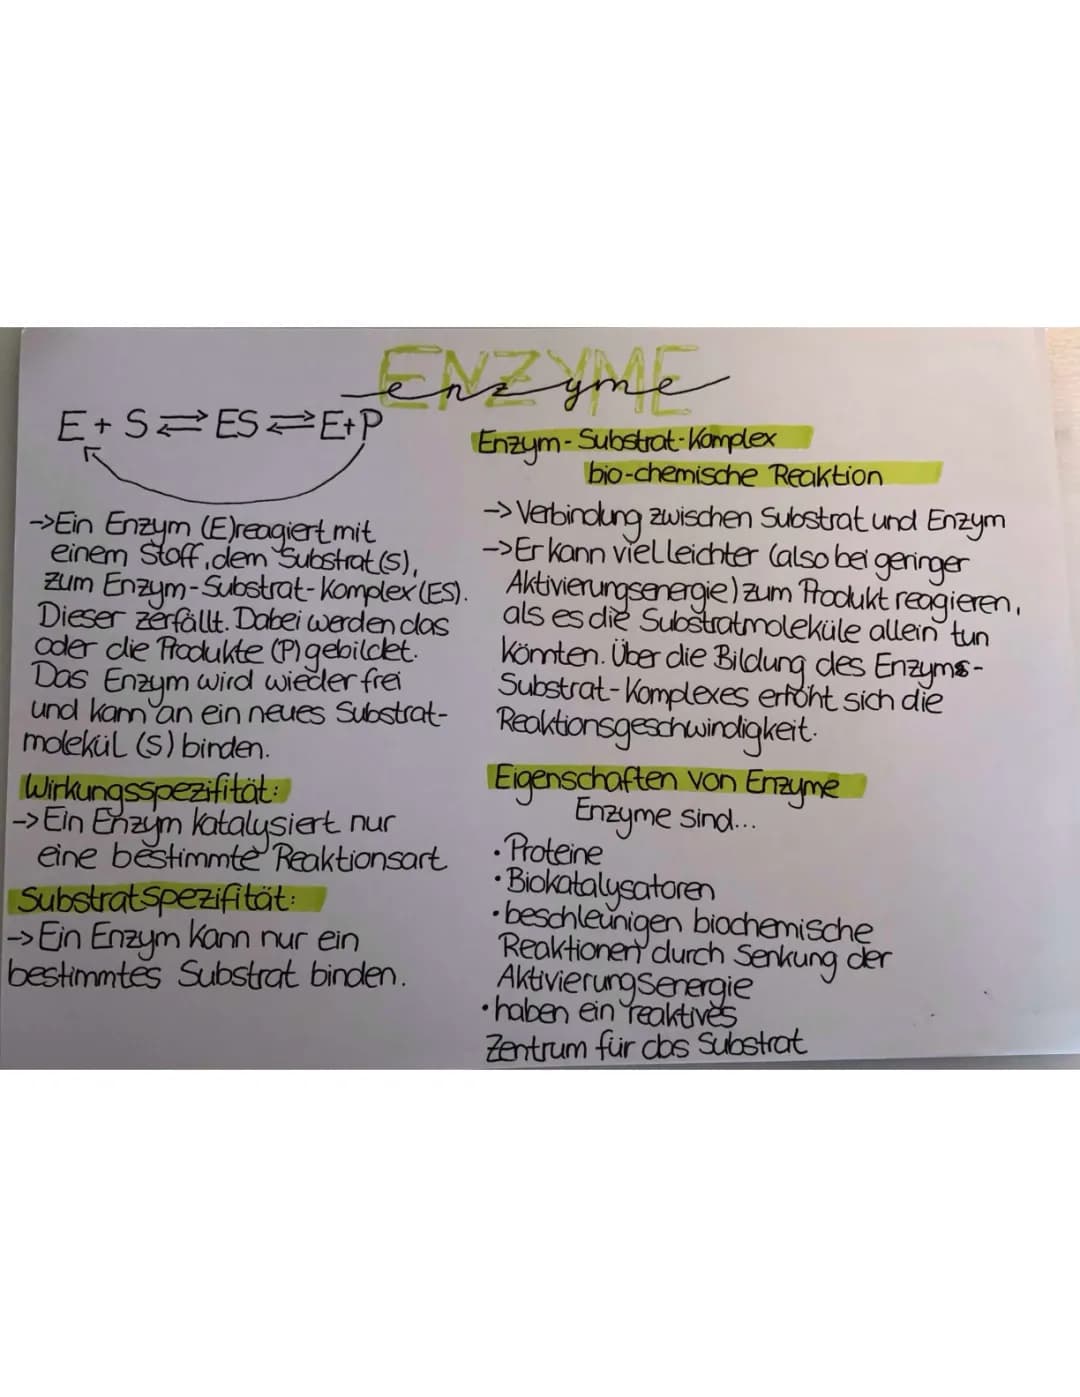 ENZYME
enzyme
E + S ⇌ ES ⇌ E+P
->Ein Enzym (E)reagiert mit
einem Stoff, dem Substrat(S),
zum Enzym-Substrat-Komplex(ES).
Dieser zerfällt. Dabei werden das
oder die Produkte (P) gebildet.
Das Enzym wird wieder frei
und kann an ein neues Substrat-
molekül (S) binden.
Wirkungsspezifität:
->Ein Enzym katalysiert nur
eine bestimmte Reaktionsart
Substratspezifität:
->Ein Enzym kann nur ein
bestimmtes Substrat binden.
Enzym-Substrat-Komplex
bio-chemische Reaktion
->Verbindung zwischen Substrat und Enzym
->Er kann viel leichter (also bei geringer
Aktivierungsenergie) zum Produkt reagieren,
als es die Substratmoleküle allein tun
könnten. Über die Bildung des Enzyms-
Substrat-Komplexes erhöht sich die
Reaktionsgeschwindigkeit.
Eigenschaften von Enzyme
Enzyme sind...
• Proteine
• Biokatalysatoren
• beschleunigen biochemische
Reaktionen durch Senkung der
Aktivierungsenergie
• haben ein reaktives
Zentrum für das Substrat